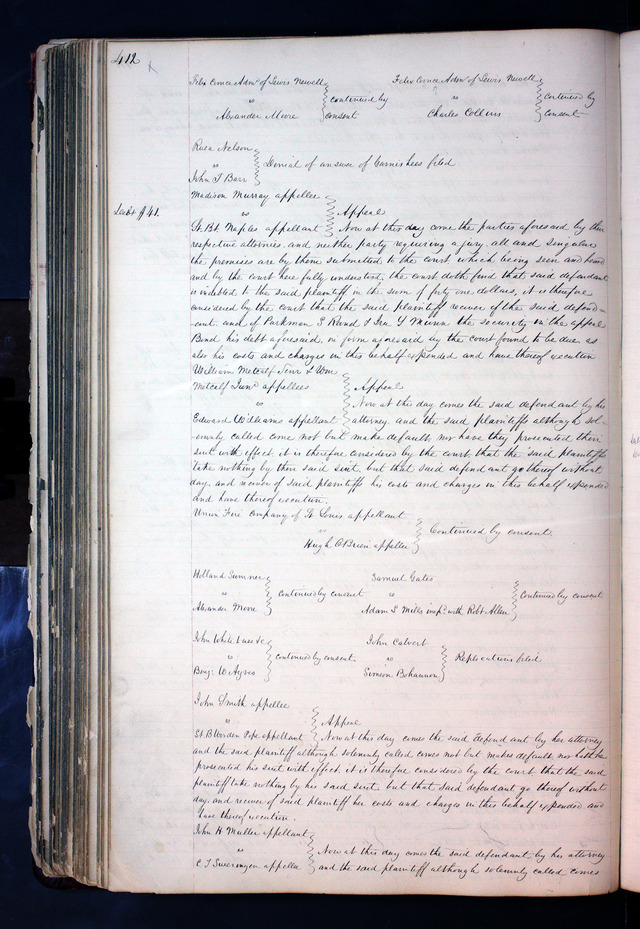 412
Felix Comce Admr of Lewis Newell
vs
Alexander Moore
continued by
consent
Felix Comce Admr of Lewis Newell
vs
Charles Collins
continued by
consent
Nelson
vs
John T Barr
Denial of answer of Garnishees filed
Madison Murray appellee
vs
Appeal
Debt $41.
St. Bt. Naples appellant Now at this day come the parties aforesaid by their
respective attornies, and neither party requiring a jury, all and singular
the premises are by them submitted to the court which being seen and heard
and by the court here fully understood, the court doth find that said defendant
is indebted to the said plaintiff in the sum of forty one dollars, it is therefore
considered by the court that the said plaintiff recover of the said defend-
ant and of Parkman & Ira Y Munn the security in the appeal
Bond his debt aforesaid, in form aforesaid by the court found to be due as
also his costs and charges in this behalf expended and have thereof execution
William Metcalf Senr & Wm
Metcalf Junr appellees
vs
Appeal
Now at this day comes the said defendant by his
Edward Williams appellant attorney and the said plaintiffs although sol-
emnly called come not but make default, nor have they prosecuted their
suit with effect. it is therefore considered by the court that the said plaintiffs
take nothing by their said suit, but that said defendant go thereof without
day, and recover of said plaintiff his costs and charges in this behalf expended
and have thereof execution.
Union Fire Company of St Louis appellant
vs
Hugh O'Brien appellee
Continued by consent.
Holland Sumner
vs
Alexander Moore
continued by consent
Samuel Gates
vs
Adam S Mills impd. with Robt Allen
Continued by consent
John White
vs
Benj. W Ayres
continued by consent
John Calvert
vs
Simson Bohannon
Replications filed
John Smith appellee
vs
Appeal
St. B Worden Pope appellant Now at this day comes the said defendant by her attorney
and the said plaintiff although solemnly called comes not but makes default, nor hath he
prosecuted his suit with effect. it is therefore considered by the court that the said
plaintiff take nothing by his said suit. but that said defendant go thereof without
day, and recover of said plaintiff her costs and charges in this behalf expended and
have thereof execution.
John H Muller appellant
vs
C T appellee
Now at this day comes the said defendant by his attorney
and the said plaintiff although solemnly called comes